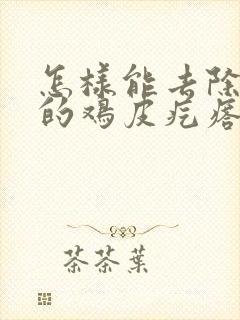 怎样能去除
的鸡皮疙瘩
茶茶葉